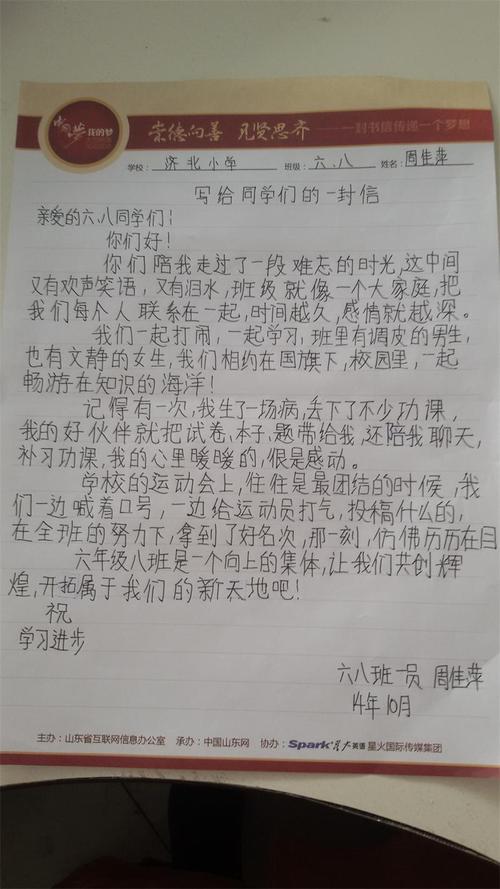 中国梦 我的梦
崇德向善 见贤思齐 ——一封书信传递一个梦想
学校: 济北小学 班级: 六、八 姓名: 周佳萍
写给同学们的一封信
亲爱的六、八同学们!
你们好!
你们陪我走过了一段难忘的时光,这中间
又有欢声笑语,又有泪水,班级就像一个大家庭,把
我们每个人联系在一起,时间越久,感情就越深。
我们一起打闹,一起学习,班里有调皮的男生,
也有文静的女生,我们相约在国旗下,校园里,一起
畅游在知识的海洋!
记得有一次,我生了一场病,丢下了不少功课,
我的好伙伴就把试卷、本子、题带给我,还陪我聊天,
补习功课,我的心里暖暖的,很是感动。
学校的运动会上,往往是最团结的时候,我
们一边喊着口号,一边给运动员打气,投稿什么的,
在全班的努力下,拿到了好名次,那一刻,仿佛历历在目
六年级八班是一个向上的集体,让我们共创辉
煌,开拓属于我们的新天地吧!
祝
学习进步
六八班一员 周佳萍
14年10月
主办:山东省互联网信息办公室 承办:中国山东网 协办:Spark星火英语 星火国际传媒集团